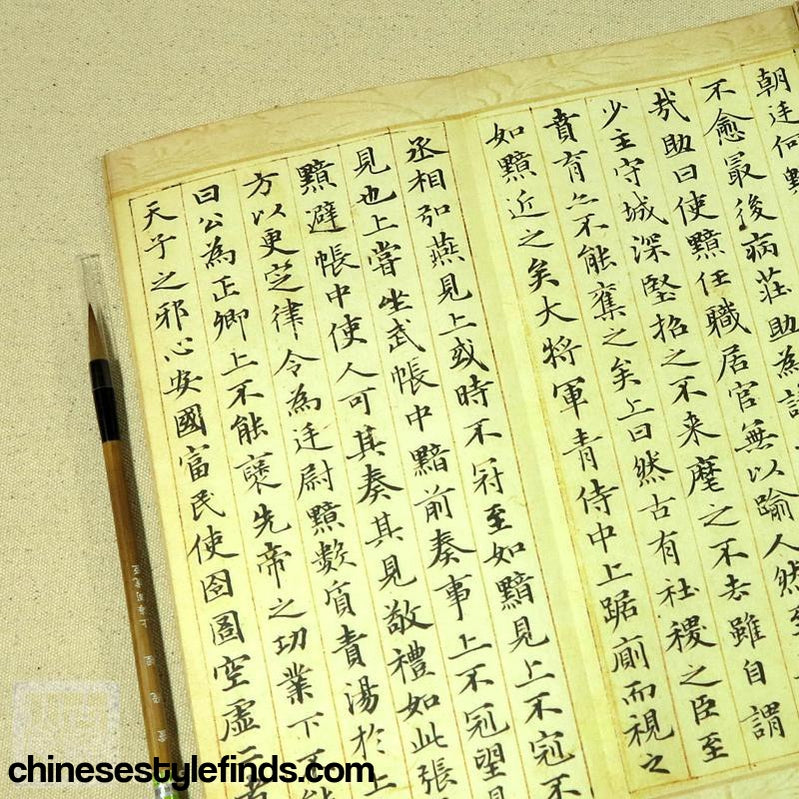 朝廷何
不愈最後病莊助為
哉助曰使黯任職居官無以踰人然至
少主守城深堅招之不来麾之不去雖自謂
賁育亦不能奪之矣上曰然古有社稷之臣至
如黯近之矣大將軍青侍中上踞廁而視之
丞相弘燕見上或時不冠至如黯見上不冠不
見也上嘗坐武帳中黯前奏事上不冠望見
黯避帳中使人可其奏其見敬禮如此張
方以更定律令為廷尉黯數質責湯於上
曰公為正卿上不能褒先帝之功業下不能
天子之邪心安國富民使囹圄空虛二者
chinesestylefinds.com